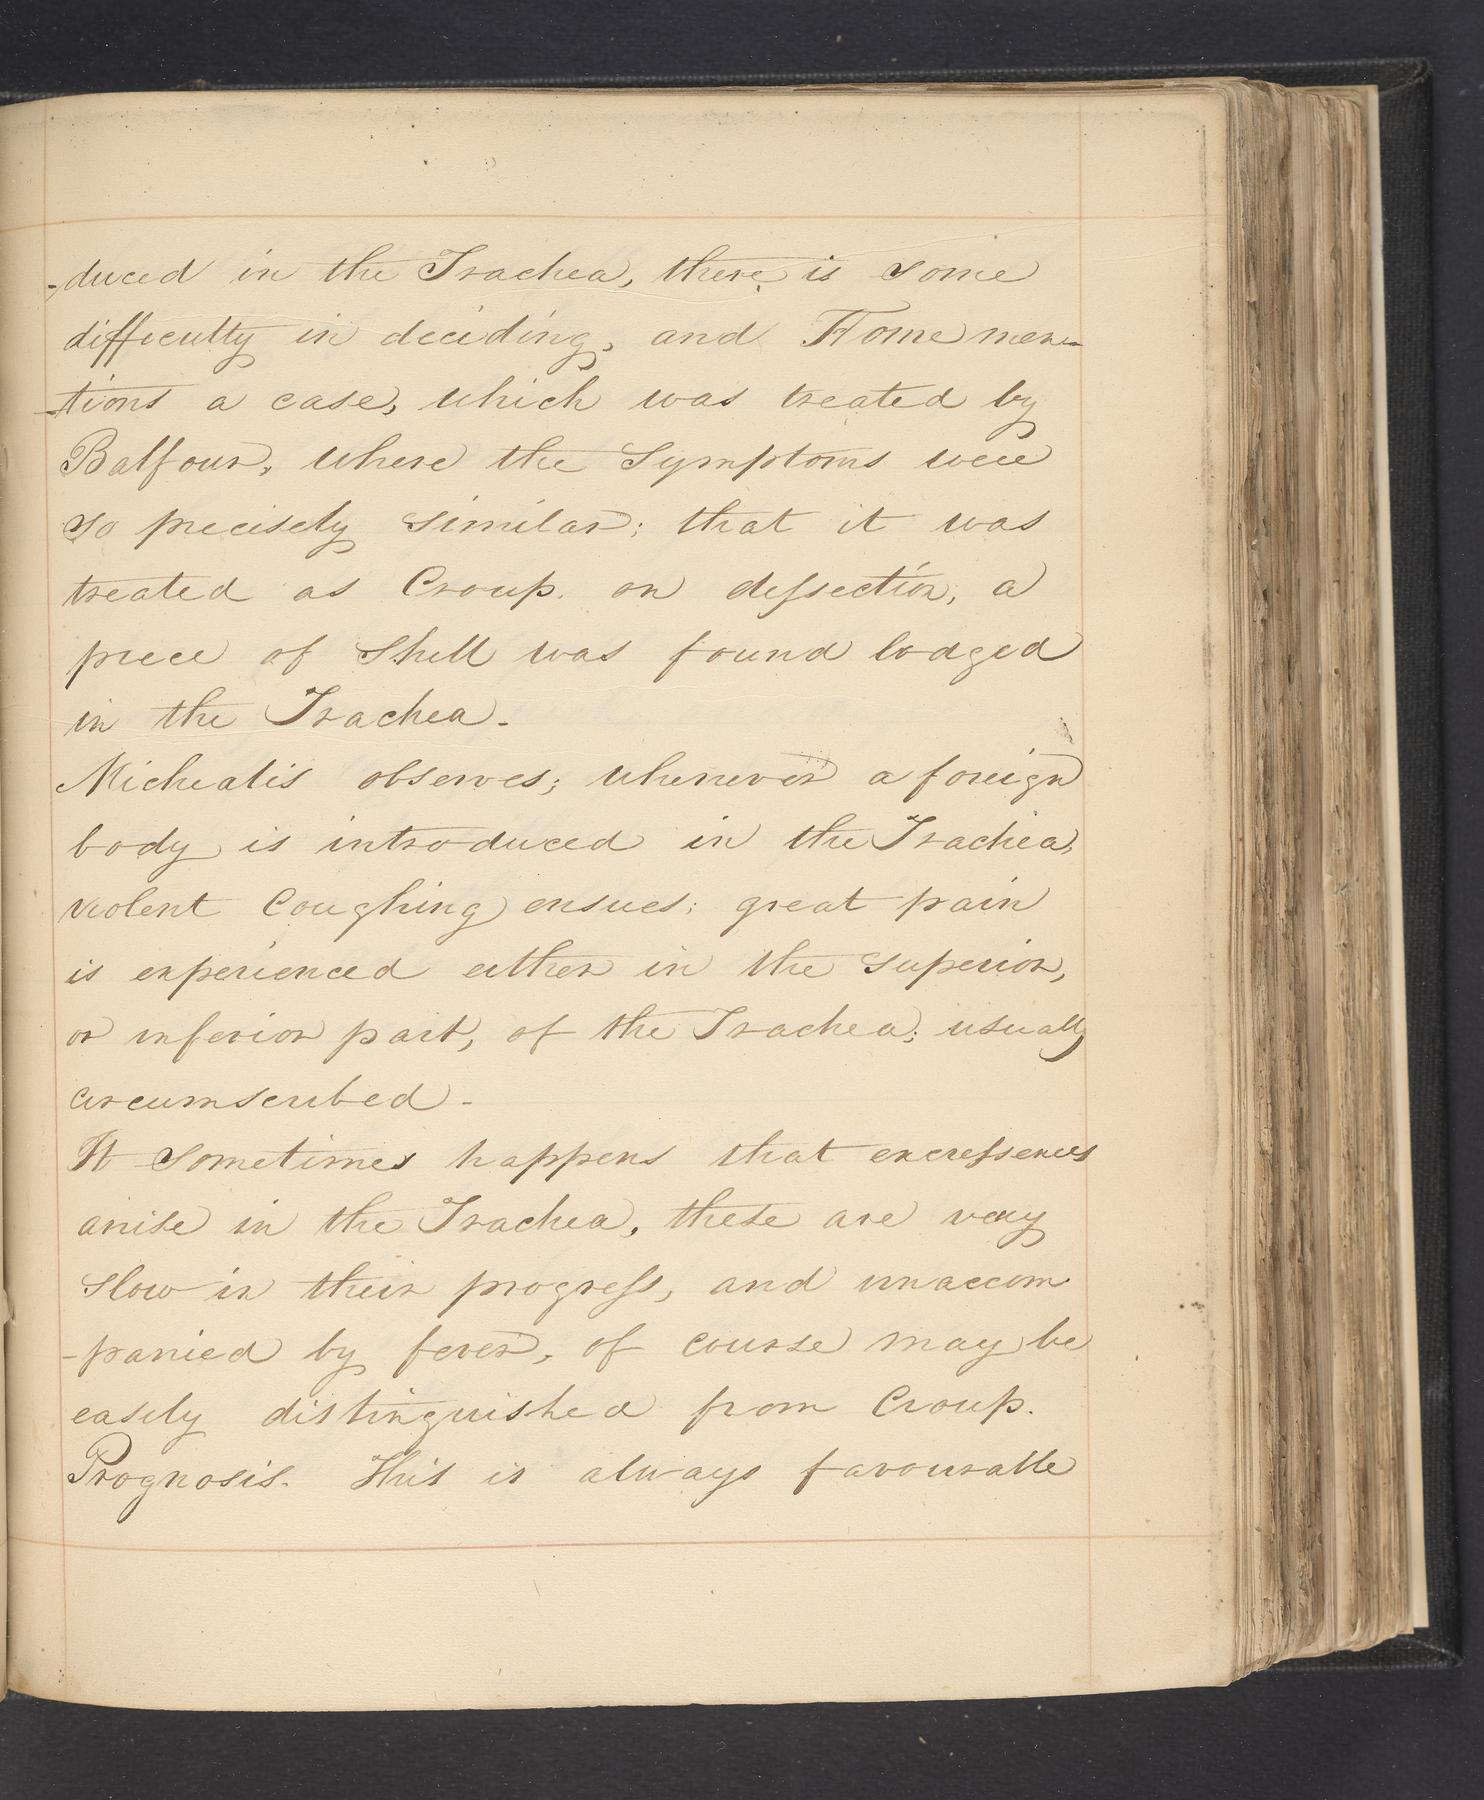 -duced in the Trachea, there is some
difficulty in deciding, and Home men-
-tions a case, which was treated by
Balfour, where the Symptoms were
so precisely similar; that it was
treated as Croup. on dessection, a
piece of Shell was found lodged
in the Trachea.-
Michealis observes; whenever a foreign
body is introduced in the Trachea,
violent Coughing ensues; great pain
is experienced either in the superior,
or inferior part, of the Trachea; usually
circumscribed.-
It sometimes happens that excressences
arise in the Trachea, these are very
slow in their progress, and unaccom
-panied by fever, of course may be
easily distinguished from Croup.
Prognosis. This is always favourable